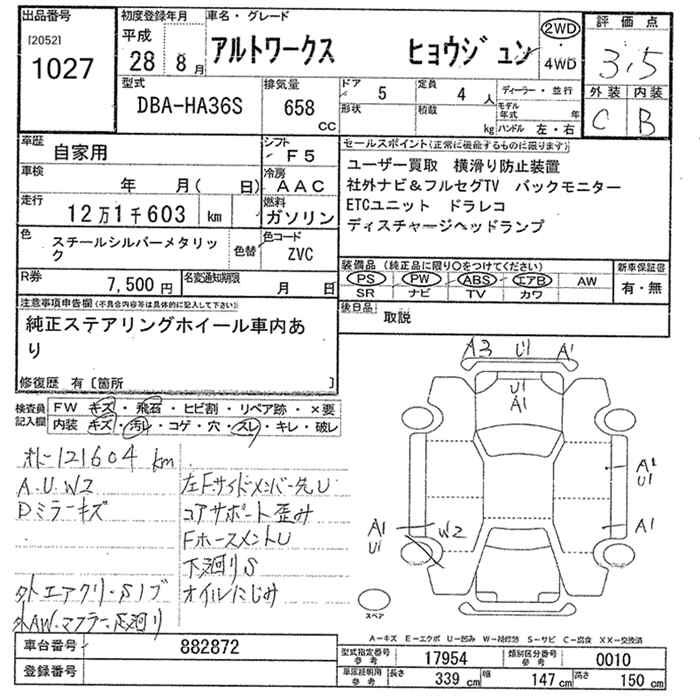 出品番号
[2052]
1027
初度登録年月
平成
28年 8月
車名・グレード
アルトワークス ヒョウジュン
2WD
4WD
評価点
3.5
外装 内装
C B
型式
DBA-HA36S
排気量
658
CC
ドア
5
形状
定員
4人
積載
kg
ディーラー・並行
モデル年式 年
ハンドル 左・右
車歴
自家用
シフト
F5
車検
年 月( 日)
冷房
AAC
走行
12万1千603 km
燃料
ガソリン
色
スチールシルバーメタリック
色替
色コード
ZVC
R券
7,500円
名変通知期限
月 日
セールスポイント(正常に機能するものに限ります)
ユーザー買取 横滑り防止装置
社外ナビ&フルセグTV バックモニター
ETCユニット ドラレコ
ディスチャージヘッドランプ
装備品(純正品に限り○をつけてください)
PS PW ABS エアB AW
SR ナビ TV カワ
新車保証書
有・無
後日品
取説
注意事項申告欄(不具合内容等は具体的に記入して下さい)
純正ステアリングホイール車内あ
り
修復歴 有[箇所 ]
検査員記入欄
FW キズ・飛石・ヒビ割・リペア跡・×要
内装 キズ・汚レ・コゲ・穴・スレ・キレ・破レ
オドー121604km
A.U.W2
Dミラーキズ
左Fサイドメンバー先U
コアサポート歪み
FホースメントU
下廻りS
外エアクリ・Sノブ オイルにじみ
外AW・マフラー・足廻り
A3 U1 A1
U1
A1
A1
U1
A1
A1
U1
W2
スペア
A-キズ E-エクボ U-凹み W-補修跡 S-サビ C-腐食 XX-交換済
車台番号
882872
登録番号
型式指定番号
参考
17954
類別区分番号
参考
0010
車庫証明用
参考
長さ 339cm
幅 147cm
高さ 150cm